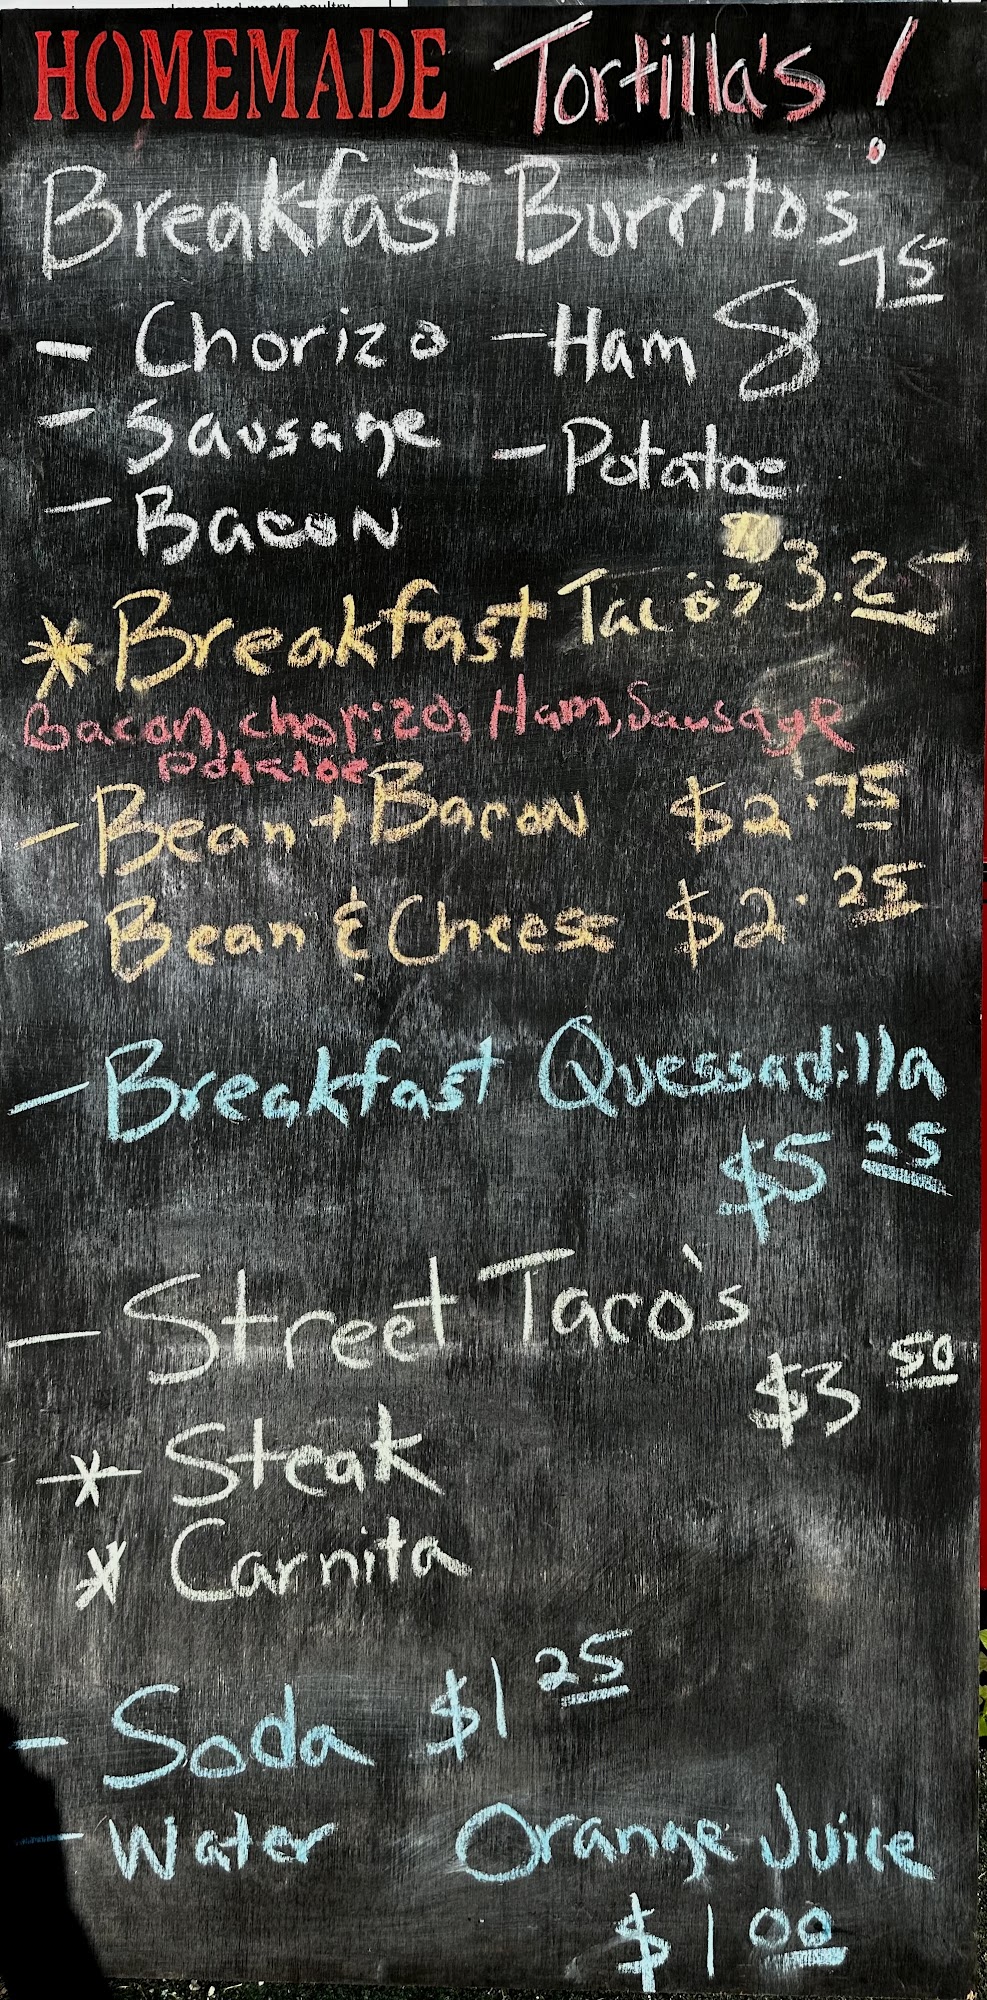 HOMEMADE Tortilla's !
Breakfast Burritos
- Chorizo - Ham 8 75
- Sausage - Potatoe
- Bacon
* Breakfast Taco's 3.25
Bacon, chorizo, Ham, Sausage
Potatoe
- Bean + Bacon $2.75
- Bean & Cheese $2.25
- Breakfast Quessadilla
$5 25
- Street Taco's
$3 50
* Steak
* Carnita
- Soda $1 25
- Water Orange Juice
$1 00